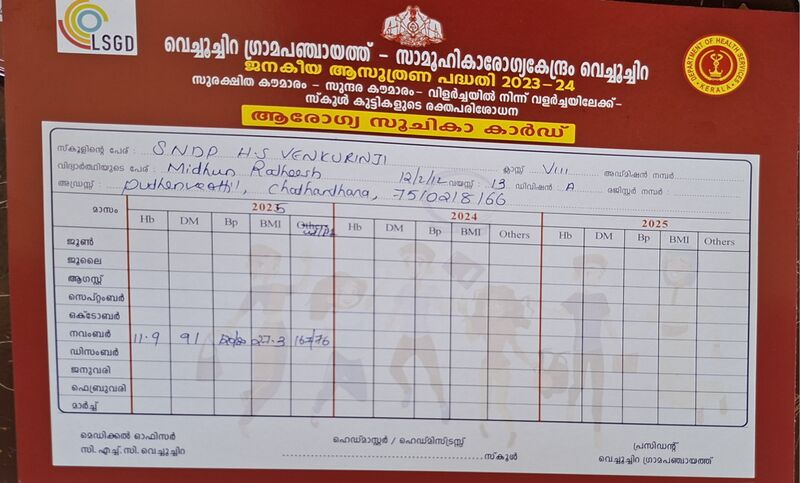 LSGD
വെച്ചൂച്ചിറ ഗ്രാമപഞ്ചായത്ത് - സാമൂഹികാരോഗ്യകേന്ദ്രം വെച്ചൂച്ചിറ
ജനകീയ ആസൂത്രണ പദ്ധതി 2023-24
സുരക്ഷിത കൗമാരം - സുന്ദര കൗമാരം- വിളർച്ചയിൽ നിന്ന് വളർച്ചയിലേക്ക്-
സ്കൂൾ കുട്ടികളുടെ രക്തപരിശോധന
ആരോഗ്യ സൂചികാ കാർഡ്
DEPARTMENT OF HEALTH SERVICES KERALA
സ്കൂളിന്റെ പേര് : SNDP H.S VENKURINJI ക്ലാസ്സ് VIII അഡ്മിഷൻ നമ്പർ
വിദ്യാർത്ഥിയുടെ പേര് : Midhun Radheesh 12/2/12 വയസ്സ് : 13 ഡിവിഷൻ A രജിസ്റ്റർ നമ്പർ :
അഡ്രസ്സ് : Chathanthana, 7510218166
മാസം 2025 2024 2025
Hb DM Bp BMI Hb DM Bp BMI Others Hb DM Bp BMI Others
ജൂൺ
ജൂലൈ
ആഗസ്റ്റ്
സെപ്റ്റംബർ
ഒക്ടോബർ
നവംബർ 11.9 91 27.3 167/76
ഡിസംബർ
ജനുവരി
ഫെബ്രുവരി
മാർച്ച്
മെഡിക്കൽ ഓഫീസർ ഹെഡ്മാസ്റ്റർ / ഹെഡ്മിസ്ട്രസ്സ് പ്രസിഡന്റ്
സി. എച്ച്.സി. വെച്ചൂച്ചിറ സ്കൂൾ വെച്ചൂച്ചിറ ഗ്രാമപഞ്ചായത്ത്